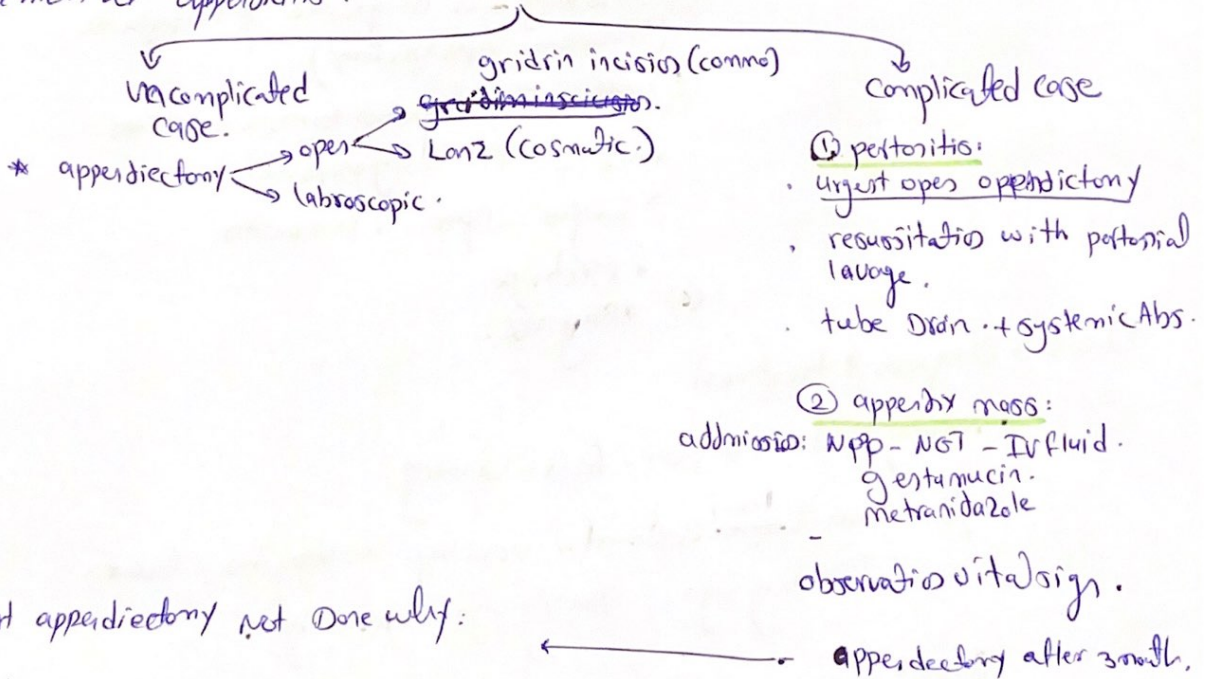 uncomplicated
case.
* appendiectomy
open
gridrin incision (common)
Lanz (cosmatic.)
labroscopic.
complicated case
① pertonitis:
. urgent open appendictomy
. resussitation with pertonial
lavage.
. tube Drain + systemic Abs.
② appendix mass:
addmission: NPP - NGT - IV fluid.
gentamucin.
metranidazole
-
observation vital sign.
- appendectomy after 3 month.
appendiectomy not Done why: